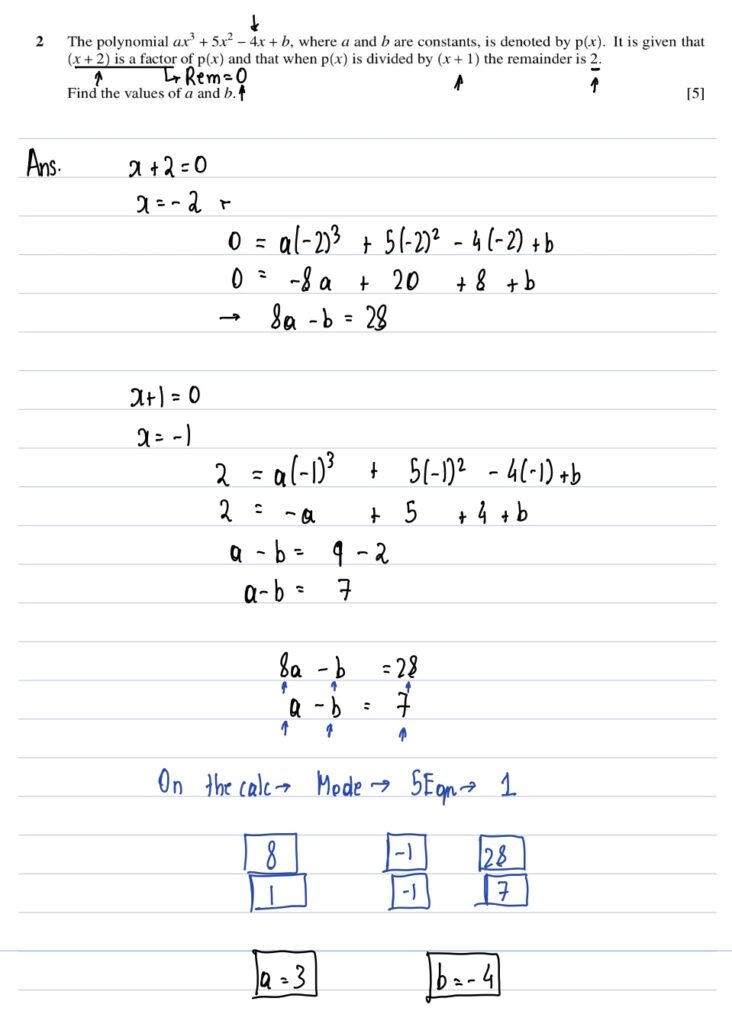 2 The polynomial ax³ + 5x² − 4x + b, where a and b are constants, is denoted by p(x). It is given that
(x + 2) is a factor of p(x) and that when p(x) is divided by (x + 1) the remainder is 2.
↳ Rem = 0
Find the values of a and b. [5]
Ans. x + 2 = 0
x = -2
0 = a(-2)³ + 5(-2)² - 4(-2) + b
0 = -8a + 20 + 8 + b
→ 8a - b = 28
x+1 = 0
x = -1
2 = a(-1)³ + 5(-1)² - 4(-1) + b
2 = -a + 5 + 4 + b
a - b = 9 - 2
a-b = 7
8a - b = 28
a - b = 7
On the calc → Mode → 5Eqn → 1
8 -1 28
1 -1 7
a = 3 b = -4